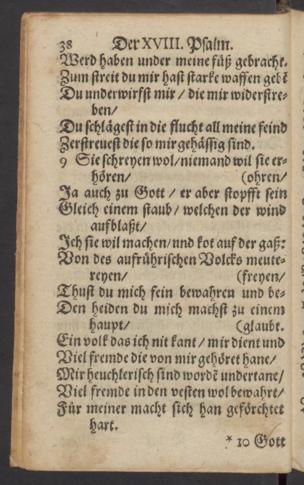 38 Der XVIII. Psalm.
Werd haben under meine füß gebracht.
Zum streit du mir hast starke waffen gebẽ
Du underwirfst mir / die mir widerstre-
ben/
Du schlägest in die flucht all meine feind
Zerstreuest die so mir gehässig sind.
9 Sie schreyen wol/niemand wil sie er-
hören/ (ohren/
Ja auch zu Gott / er aber stopfft sein
Gleich einem staub / welchen der wind
aufblaßt/
Ich sie wil machen/und kot auf der gaß:
Von des aufrührischen Volcks meute-
reyen/ (freyen/
Thust du mich fein bewahren und be-
Den heiden du mich machst zu einem
haupt/ (glaubt.
Ein volk das ich nit kant / mir dient und
Viel fremde die von mir gehöret hane/
Mir heuchlerisch sind wordẽ undertane/
Viel fremde in den vesten wol bewahrt/
Für meiner macht sich han geförchtet
hart.
* 10 Gott